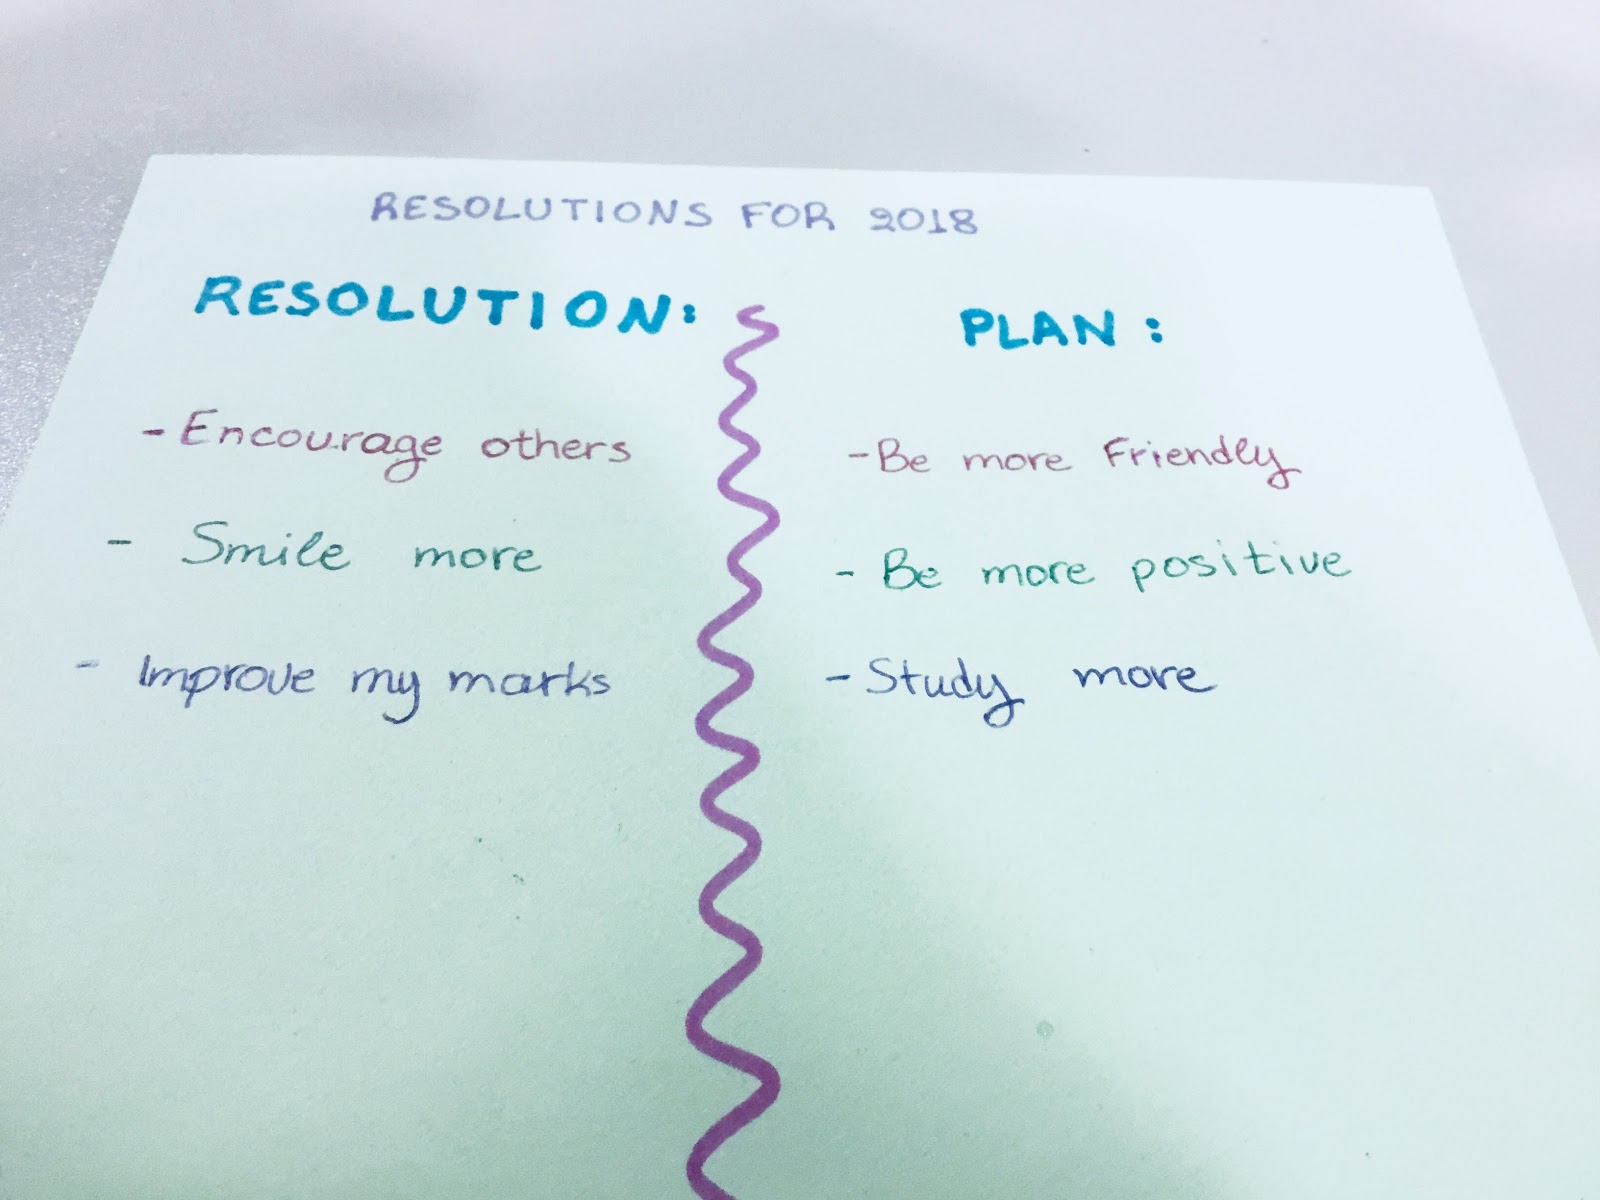 RESOLUTIONS FOR 2018
RESOLUTION:
- Encourage others
- Smile more
- Improve my marks
PLAN:
- Be more Friendly
- Be more positive
- Study more